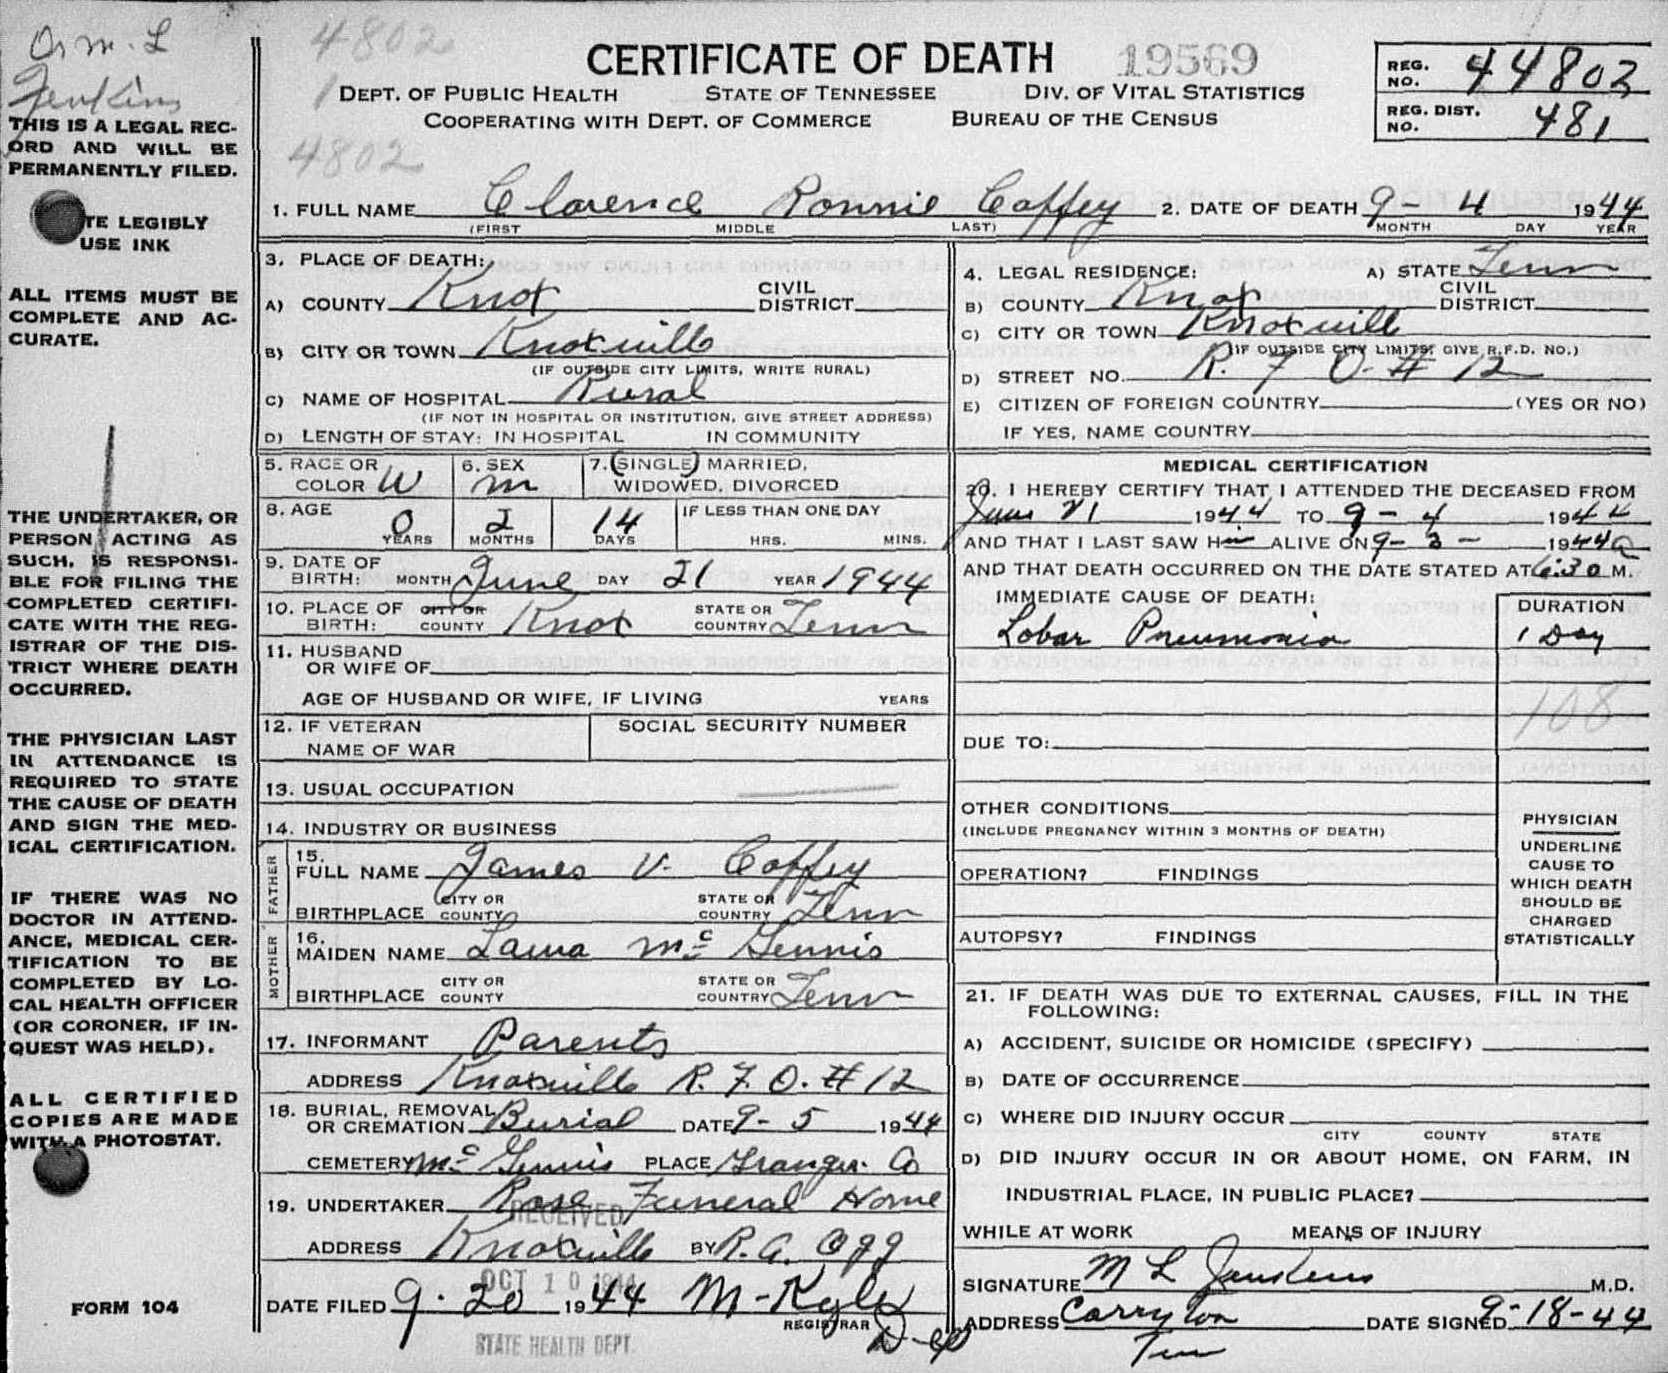 Dr m. L
Jenkins
4802
1
4802
CERTIFICATE OF DEATH 19569
DEPT. OF PUBLIC HEALTH STATE OF TENNESSEE DIV. OF VITAL STATISTICS
COOPERATING WITH DEPT. OF COMMERCE BUREAU OF THE CENSUS
REG. NO. 44802
REG. DIST. NO. 481
THIS IS A LEGAL REC-
ORD AND WILL BE
PERMANENTLY FILED.
TE LEGIBLY
USE INK
ALL ITEMS MUST BE
COMPLETE AND AC-
CURATE.
THE UNDERTAKER, OR
PERSON ACTING AS
SUCH, IS RESPONSI-
BLE FOR FILING THE
COMPLETED CERTIFI-
CATE WITH THE REG-
ISTRAR OF THE DIS-
TRICT WHERE DEATH
OCCURRED.
THE PHYSICIAN LAST
IN ATTENDANCE IS
REQUIRED TO STATE
THE CAUSE OF DEATH
AND SIGN THE MED-
ICAL CERTIFICATION.
IF THERE WAS NO
DOCTOR IN ATTEND-
ANCE, MEDICAL CER-
TIFICATION TO BE
COMPLETED BY LO-
CAL HEALTH OFFICER
(OR CORONER, IF IN-
QUEST WAS HELD).
ALL CERTIFIED
COPIES ARE MADE
WITH A PHOTOSTAT.
FORM 104
1. FULL NAME Clarence Ronnie Coffey 2. DATE OF DEATH 9- 4 1944
(FIRST MIDDLE LAST) MONTH DAY YEAR
3. PLACE OF DEATH:
A) COUNTY Knox CIVIL DISTRICT
B) CITY OR TOWN Knoxville
(IF OUTSIDE CITY LIMITS, WRITE RURAL)
C) NAME OF HOSPITAL Rural
(IF NOT IN HOSPITAL OR INSTITUTION, GIVE STREET ADDRESS)
D) LENGTH OF STAY: IN HOSPITAL IN COMMUNITY
4. LEGAL RESIDENCE: A) STATE Tenn
B) COUNTY Knox CIVIL DISTRICT
C) CITY OR TOWN Knoxville
(IF OUTSIDE CITY LIMITS, GIVE R.F.D. NO.)
D) STREET NO. R. F D. # 12
E) CITIZEN OF FOREIGN COUNTRY (YES OR NO)
IF YES, NAME COUNTRY
5. RACE OR COLOR W 6. SEX m 7. (SINGLE) MARRIED, WIDOWED, DIVORCED
8. AGE 0 YEARS 2 MONTHS 14 DAYS IF LESS THAN ONE DAY HRS. MINS.
9. DATE OF BIRTH: MONTH June DAY 21 YEAR 1944
10. PLACE OF BIRTH: CITY OR COUNTY Knox STATE OR COUNTRY Tenn
11. HUSBAND
OR WIFE OF
AGE OF HUSBAND OR WIFE, IF LIVING YEARS
12. IF VETERAN NAME OF WAR SOCIAL SECURITY NUMBER
13. USUAL OCCUPATION
14. INDUSTRY OR BUSINESS
FATHER
15. FULL NAME James V. Coffey
BIRTHPLACE CITY OR COUNTY STATE OR COUNTRY Tenn
MOTHER
16. MAIDEN NAME Laura Mc Gennis
BIRTHPLACE CITY OR COUNTY STATE OR COUNTRY Tenn
17. INFORMANT Parents
ADDRESS Knoxville R. F. D. # 12
18. BURIAL, REMOVAL OR CREMATION Burial DATE 9- 5 1944
CEMETERY Mc Gennis PLACE Granger Co
19. UNDERTAKER Rose Funeral Home
RECEIVED
ADDRESS Knoxville BY R. A. Ogg
OCT 10 1944
DATE FILED 9. 20 1944 M-Kyle
REGISTRAR Dep
STATE HEALTH DEPT.
MEDICAL CERTIFICATION
20. I HEREBY CERTIFY THAT I ATTENDED THE DECEASED FROM
June 21 1944 TO 9-4 1944
AND THAT I LAST SAW Him ALIVE ON 9-3- 1944
AND THAT DEATH OCCURRED ON THE DATE STATED AT 6:30 a M.
IMMEDIATE CAUSE OF DEATH: DURATION
Lobar Pneumonia 1 Day
108
DUE TO:
OTHER CONDITIONS
(INCLUDE PREGNANCY WITHIN 3 MONTHS OF DEATH)
OPERATION? FINDINGS
AUTOPSY? FINDINGS
PHYSICIAN
UNDERLINE
CAUSE TO
WHICH DEATH
SHOULD BE
CHARGED
STATISTICALLY
21. IF DEATH WAS DUE TO EXTERNAL CAUSES, FILL IN THE
FOLLOWING:
A) ACCIDENT, SUICIDE OR HOMICIDE (SPECIFY)
B) DATE OF OCCURRENCE
C) WHERE DID INJURY OCCUR
CITY COUNTY STATE
D) DID INJURY OCCUR IN OR ABOUT HOME, ON FARM, IN
INDUSTRIAL PLACE, IN PUBLIC PLACE?
WHILE AT WORK MEANS OF INJURY
SIGNATURE M L Jenkins M.D.
ADDRESS Corryton DATE SIGNED 9-18-44
Tenn